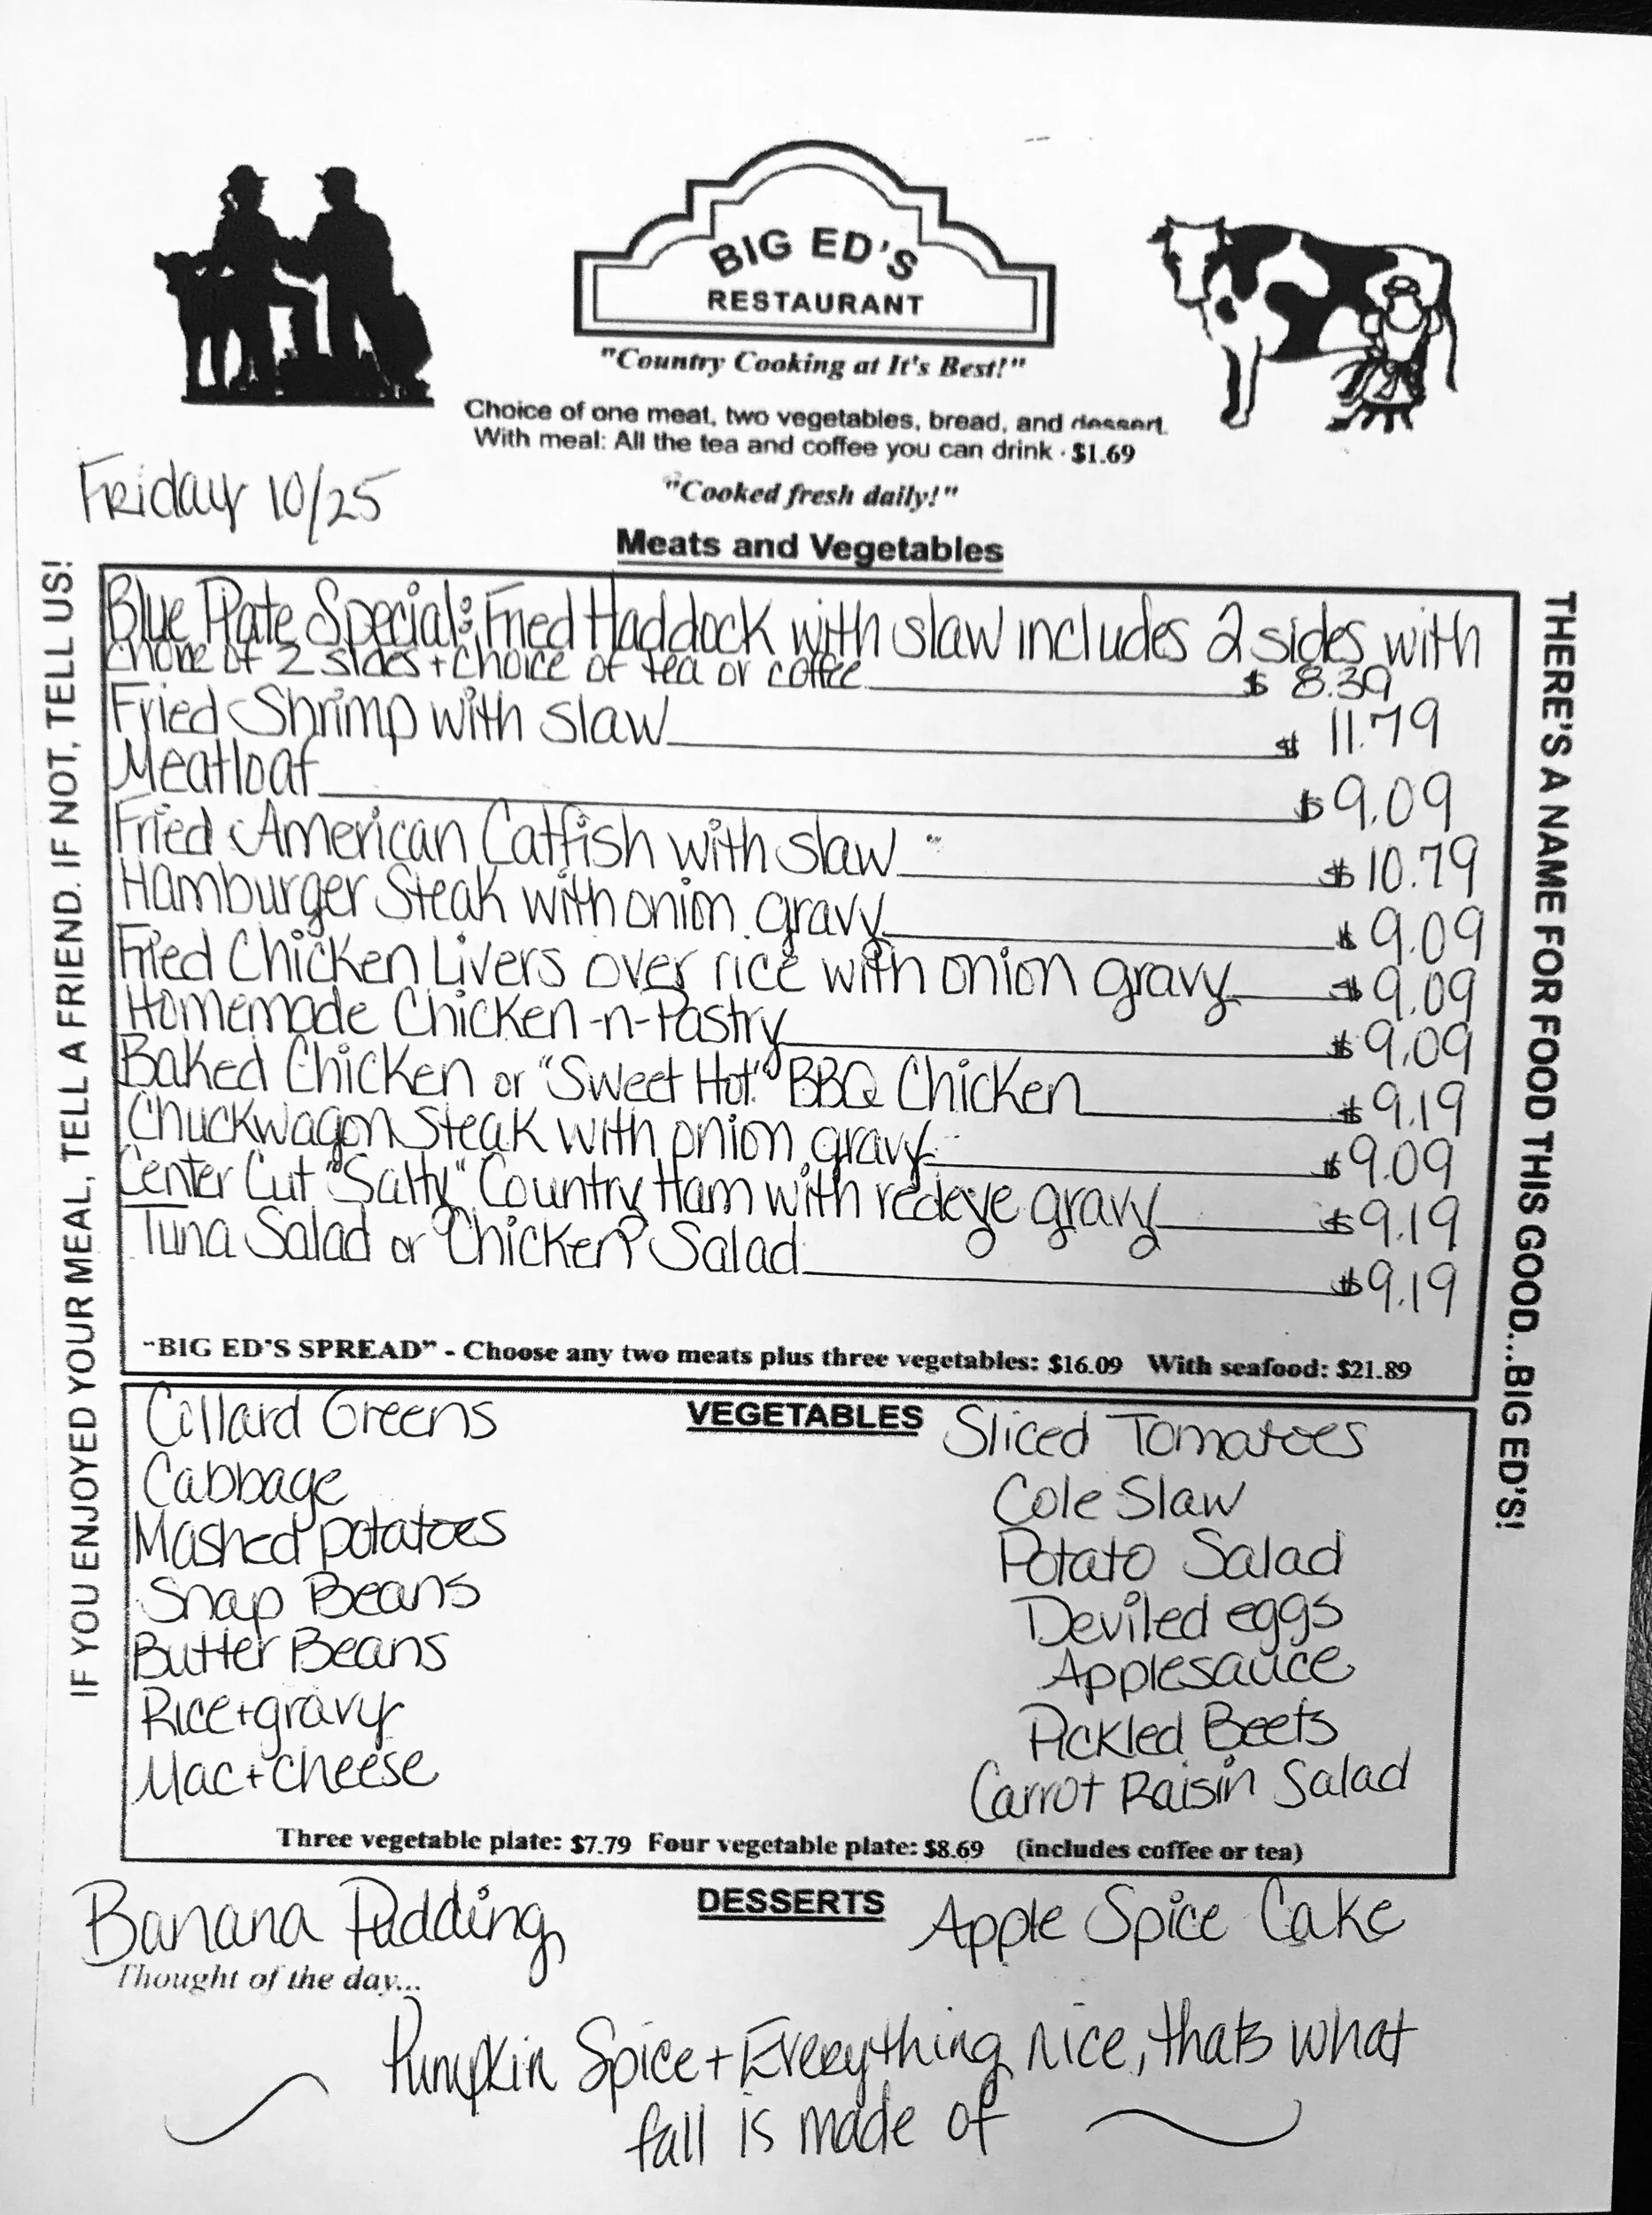 BIG ED'S
RESTAURANT
"Country Cooking at It's Best!"
Choice of one meat, two vegetables, bread, and dessert.
With meal: All the tea and coffee you can drink · $1.69
"Cooked fresh daily!"
Friday 10/25
Meats and Vegetables
IF YOU ENJOYED YOUR MEAL, TELL A FRIEND. IF NOT, TELL US!
Blue Plate Special: Fried Haddock with slaw includes 2 sides with
choice of 2 sides + choice of tea or coffee $ 8.39
Fried Shrimp with slaw $ 11.79
Meatloaf $ 9.09
Fried American Catfish with slaw $ 10.79
Hamburger Steak with onion gravy $ 9.09
Fried Chicken Livers over rice with onion gravy $ 9.09
Homemade Chicken-n-Pastry $ 9.09
Baked Chicken or "Sweet Hot" BBQ Chicken $ 9.19
Chuckwagon Steak with onion gravy $ 9.09
Center Cut "Salty" Country Ham with redeye gravy $ 9.19
Tuna Salad or Chicken Salad $ 9.19
"BIG ED'S SPREAD" - Choose any two meats plus three vegetables: $16.09 With seafood: $21.89
THERE'S A NAME FOR FOOD THIS GOOD...BIG ED'S!
VEGETABLES
Collard Greens
Cabbage
Mashed potatoes
Snap Beans
Butter Beans
Rice + gravy
Mac + cheese
Sliced Tomatoes
Cole Slaw
Potato Salad
Deviled eggs
Applesauce
Pickled Beets
Carrot Raisin Salad
Three vegetable plate: $7.79 Four vegetable plate: $8.69 (includes coffee or tea)
DESSERTS
Banana Pudding Apple Spice Cake
Thought of the day...
Pumpkin Spice + Everything nice, thats what
fall is made of